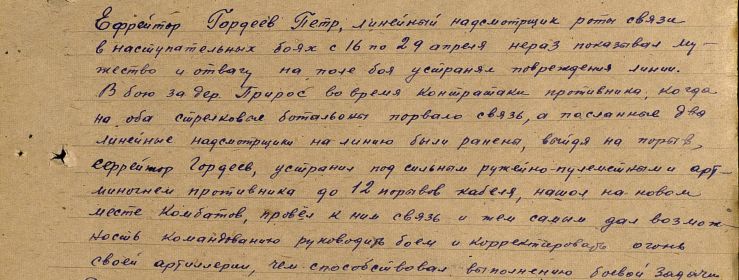 Ефрейтор Гордеев Петр, линейный надсмотрщик роты связи
в наступательных боях с 16 по 29 апреля нераз показывал му-
жество и отвагу на поле боя устраняя повреждения линии.
В бою за дер. Прирос во время контратаки противника, когда
на оба стрелковые ботальоны порвало связь, а посланные два
линейные надсмотрщики на линию были ранены, выйдя на порыв,
ефрейтор Гордеев, устранил под сильным ружейно-пулеметным и арт-
миногнем противника до 12 порывов кабеля, нашол на новом
месте Комбатов, провёл к ним связь и тем самым дал возмож-
ность командованию руководить боем и корректировать огонь
своей артиллерии, чем способствовал выполнению боевой задачи